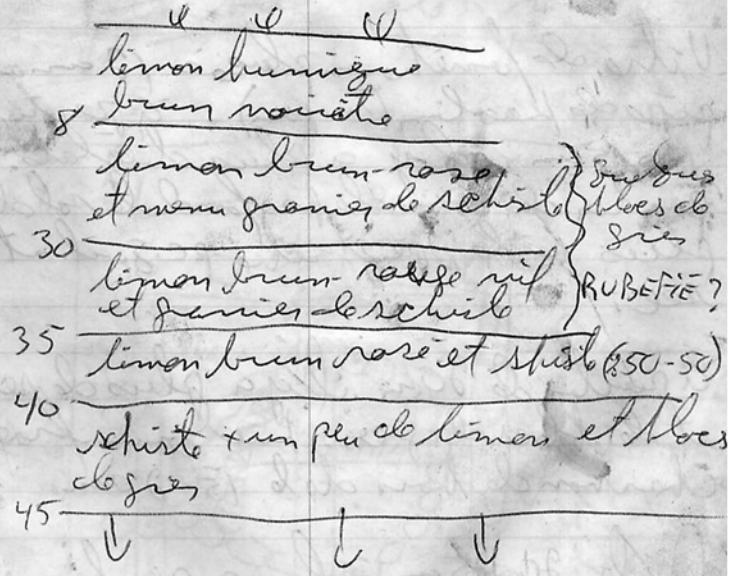 limon humique
brun noirâtre
8
limon brun-rosé
et menu gravier de schiste
quelques
blocs de
grès
30
limon brun-rouge vif
et gravier de schiste
RUBEFIE ?
35
limon brun rosé et schiste (±50-50)
40
schiste + un peu de limon et blocs
de grès
45